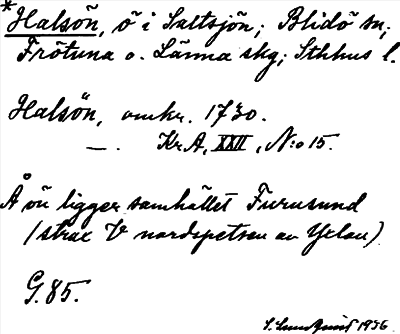 *Halsön, ö i Saltsjön; Blidö sn;
Frötuna o. Länna skg; Sthlms l.
Halsön, omkr. 1730.
—. Kr.A, XXII, N:o 15.
Å ön ligger samhället Furusund
(strax V nordspetsen av Yxlan)
G. 85.
1936